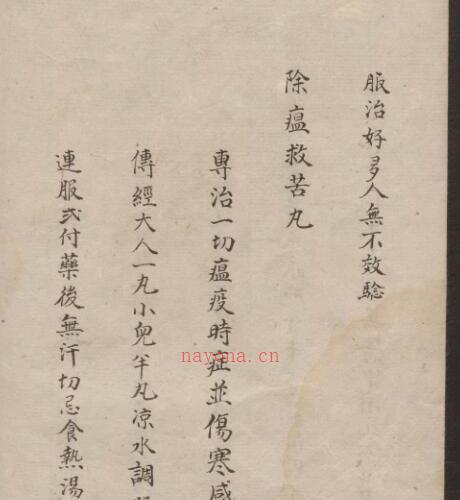 服治好多人無不效騐
除瘟救苦丸
專治一切瘟疫時症並傷寒感
傳經大人一丸小兒半丸凉水調
連服弍付藥後無汗切忌食熱湯
nayona.cn